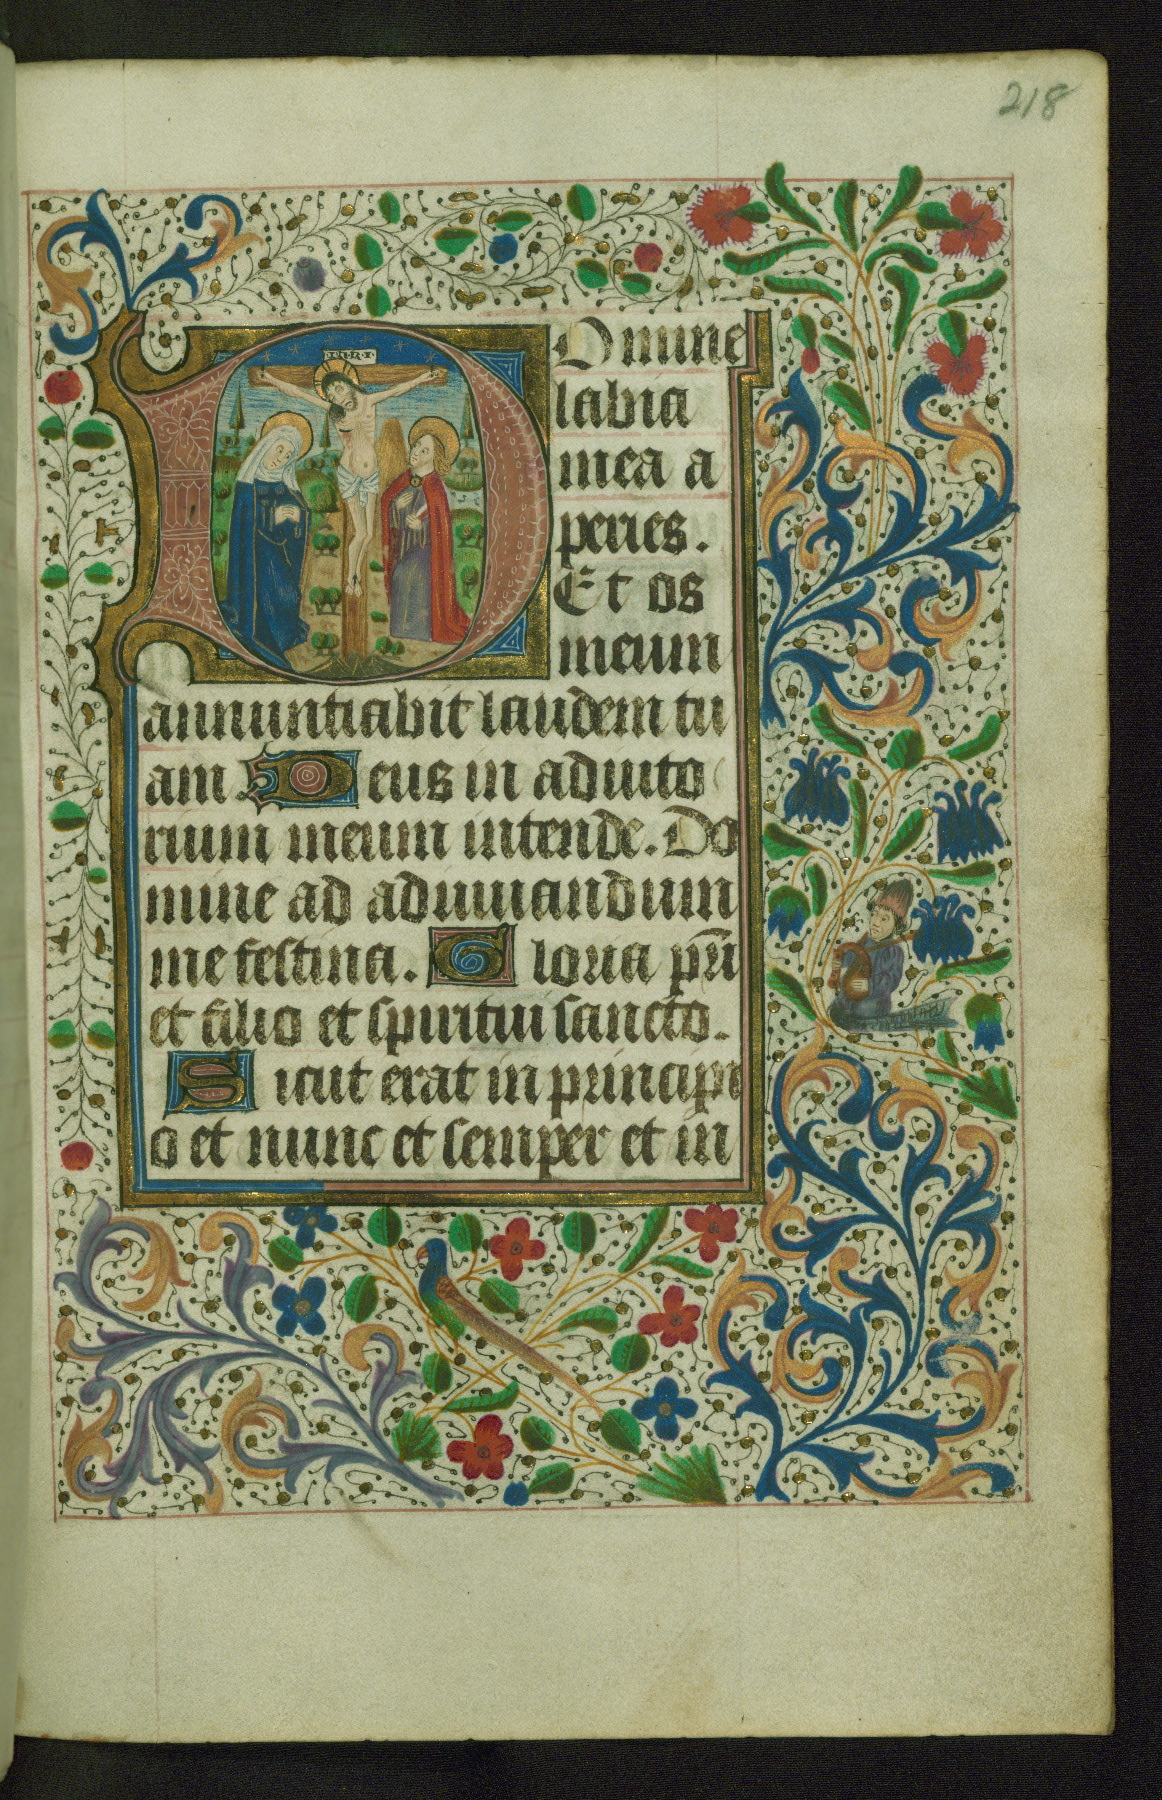 218
I.N.R.I.
Domine
labia
mea a
peries.
Et os
meum
annuntiabit laudem tu
am Deus in adiuto
rium meum intende. Do
mine ad adiuuandum
me festina. Gloria pr̄i
et filio et spiritui sancto.
Sicut erat in principi
o et nunc et semper et in